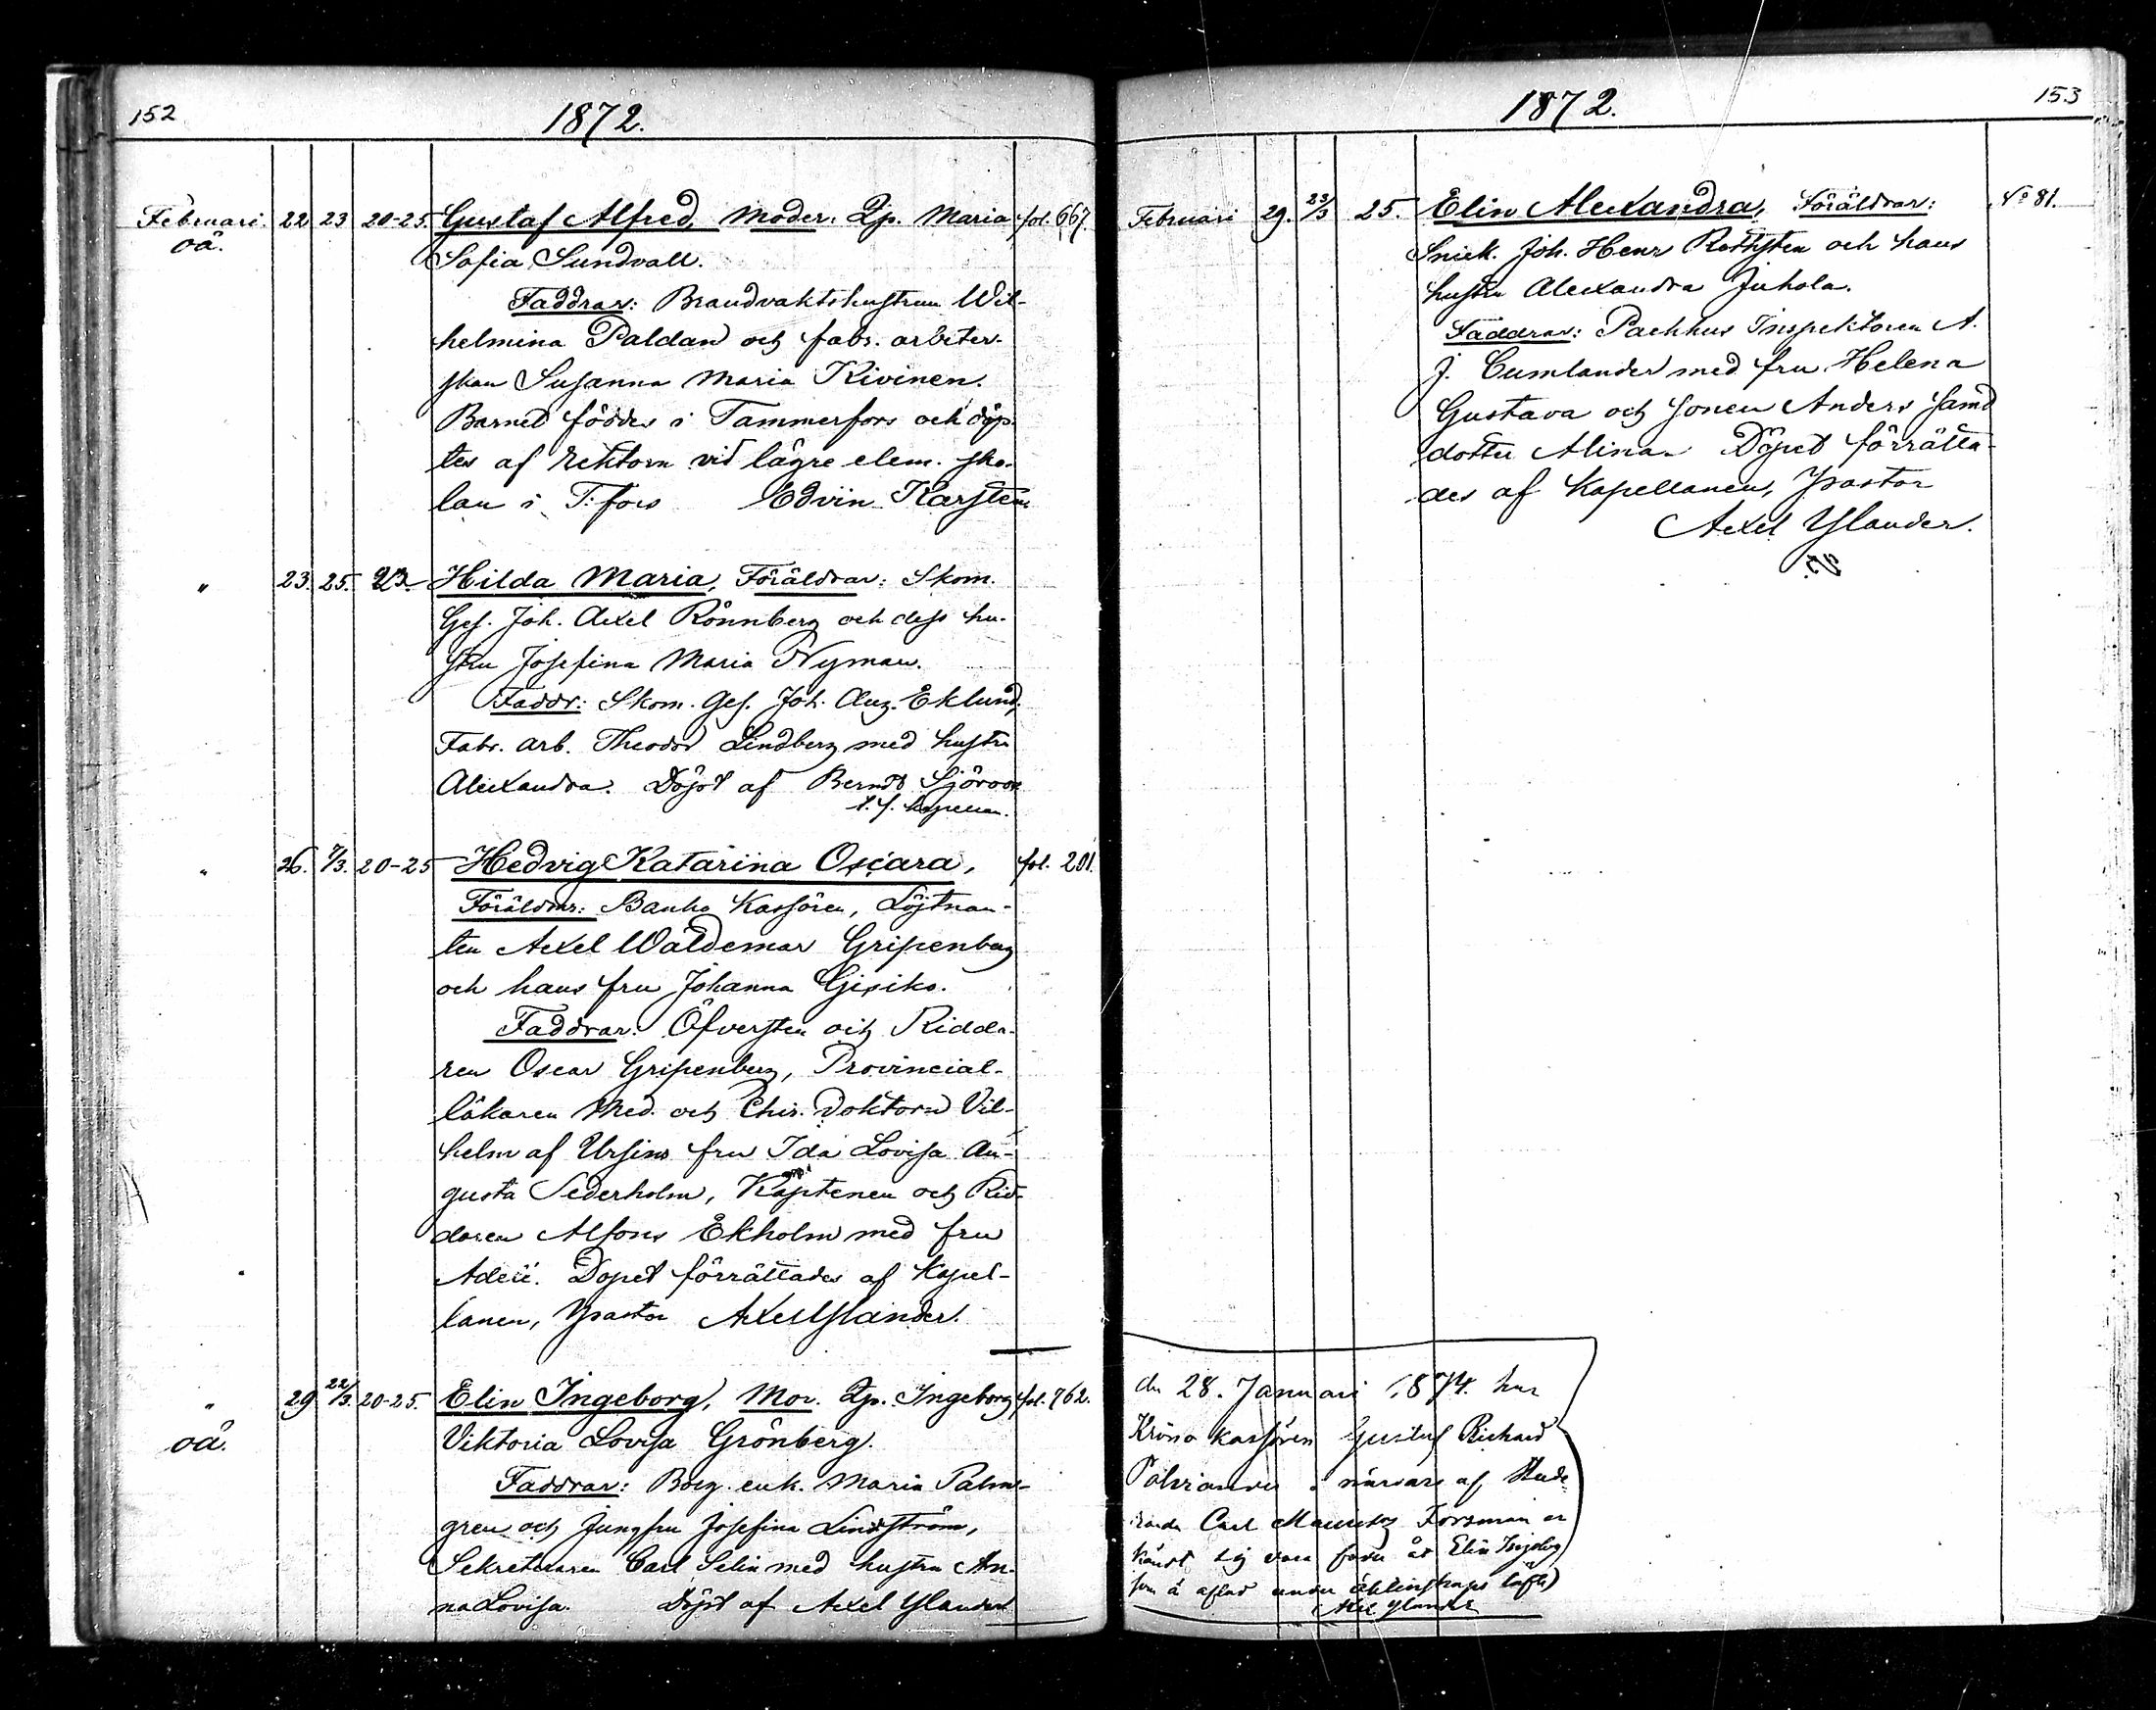 152
1872.
Februari. 22 23 20-25. Gustaf Alfred, Moder: Pig. Maria fol. 667.
oä.
Sofia Sundvall.
Faddrar: Brandvaktshustrun Wil-
helmina Paldan och fabr. arbeter-
skan Susanna Maria Kivinen.
Barnet föddes i Tammerfors och döp-
tes af rektorn vid lägre elem. sko-
lan i T:fors Edvin Karsten
" 23. 25. 23. Hilda Maria, Föräldrar: Skom.
Ges. Joh. Axel Rönnberg och dess hu-
stru Josefina Maria Nyman.
Faddr: Skom. Ges. Joh. Aug. Eklund,
Fabr. arb. Theodor Lindberg med hustru
Alexandra. Döpt af Berndt Sjöroos
t.f. kapellan.
" 26. 7/3. 20-25 Hedvig Katarina Oscara, fol. 201.
Föräldrar: Banko Kassören, Löjtnan-
ten Axel Waldemar Gripenberg
och hans fru Johanna Gisiko.
Faddrar: Öfversten och Ridda-
ren Oscar Gripenberg, Provincial-
läkaren Med. och Chir. Doktorn Vil-
helm af Ursins fru Ida Lovisa Au-
gusta Sederholm, Kaptenen och Rid-
daren Alfons Ekholm med fru
Adele. Dopet förrättades af Kapel-
lanen, Pastor Axel Ylander.
" 29 22/3. 20-25. Elin Ingeborg, Mor. Pig. Ingeborg fol. 762.
oä.
Viktoria Lovisa Grönberg.
Faddrar: Borg. enk. Maria Palm-
gren och Jungfru Josefina Lindström,
Sekreteraren Carl Selin med hustru An-
na Lovisa. Döpt af Axel Ylander
153
1872.
Februari 29. 23/3 25. Elin Alexandra, Föräldrar: No 81.
Snick. Joh. Henr Roststen och hans
hustru Alexandra Juhola.
Faddrar: Packhus Inspektoren A.
J. Cumlander med fru Helena
Gustava och sonen Anders samt
dotter Alina. Dopet förrätta-
des af Kapellanen, Pastor
Axel Ylander.
den 28. Januari 1874. har
Krono kassören Gustaf Richard
Polviander i närvaro af Stude
rande Carl Mauritz Forsman er
känt sig vara fader åt Elin Ingeborg
som är aflad under äktenskaps löfte)
Axel Ylander